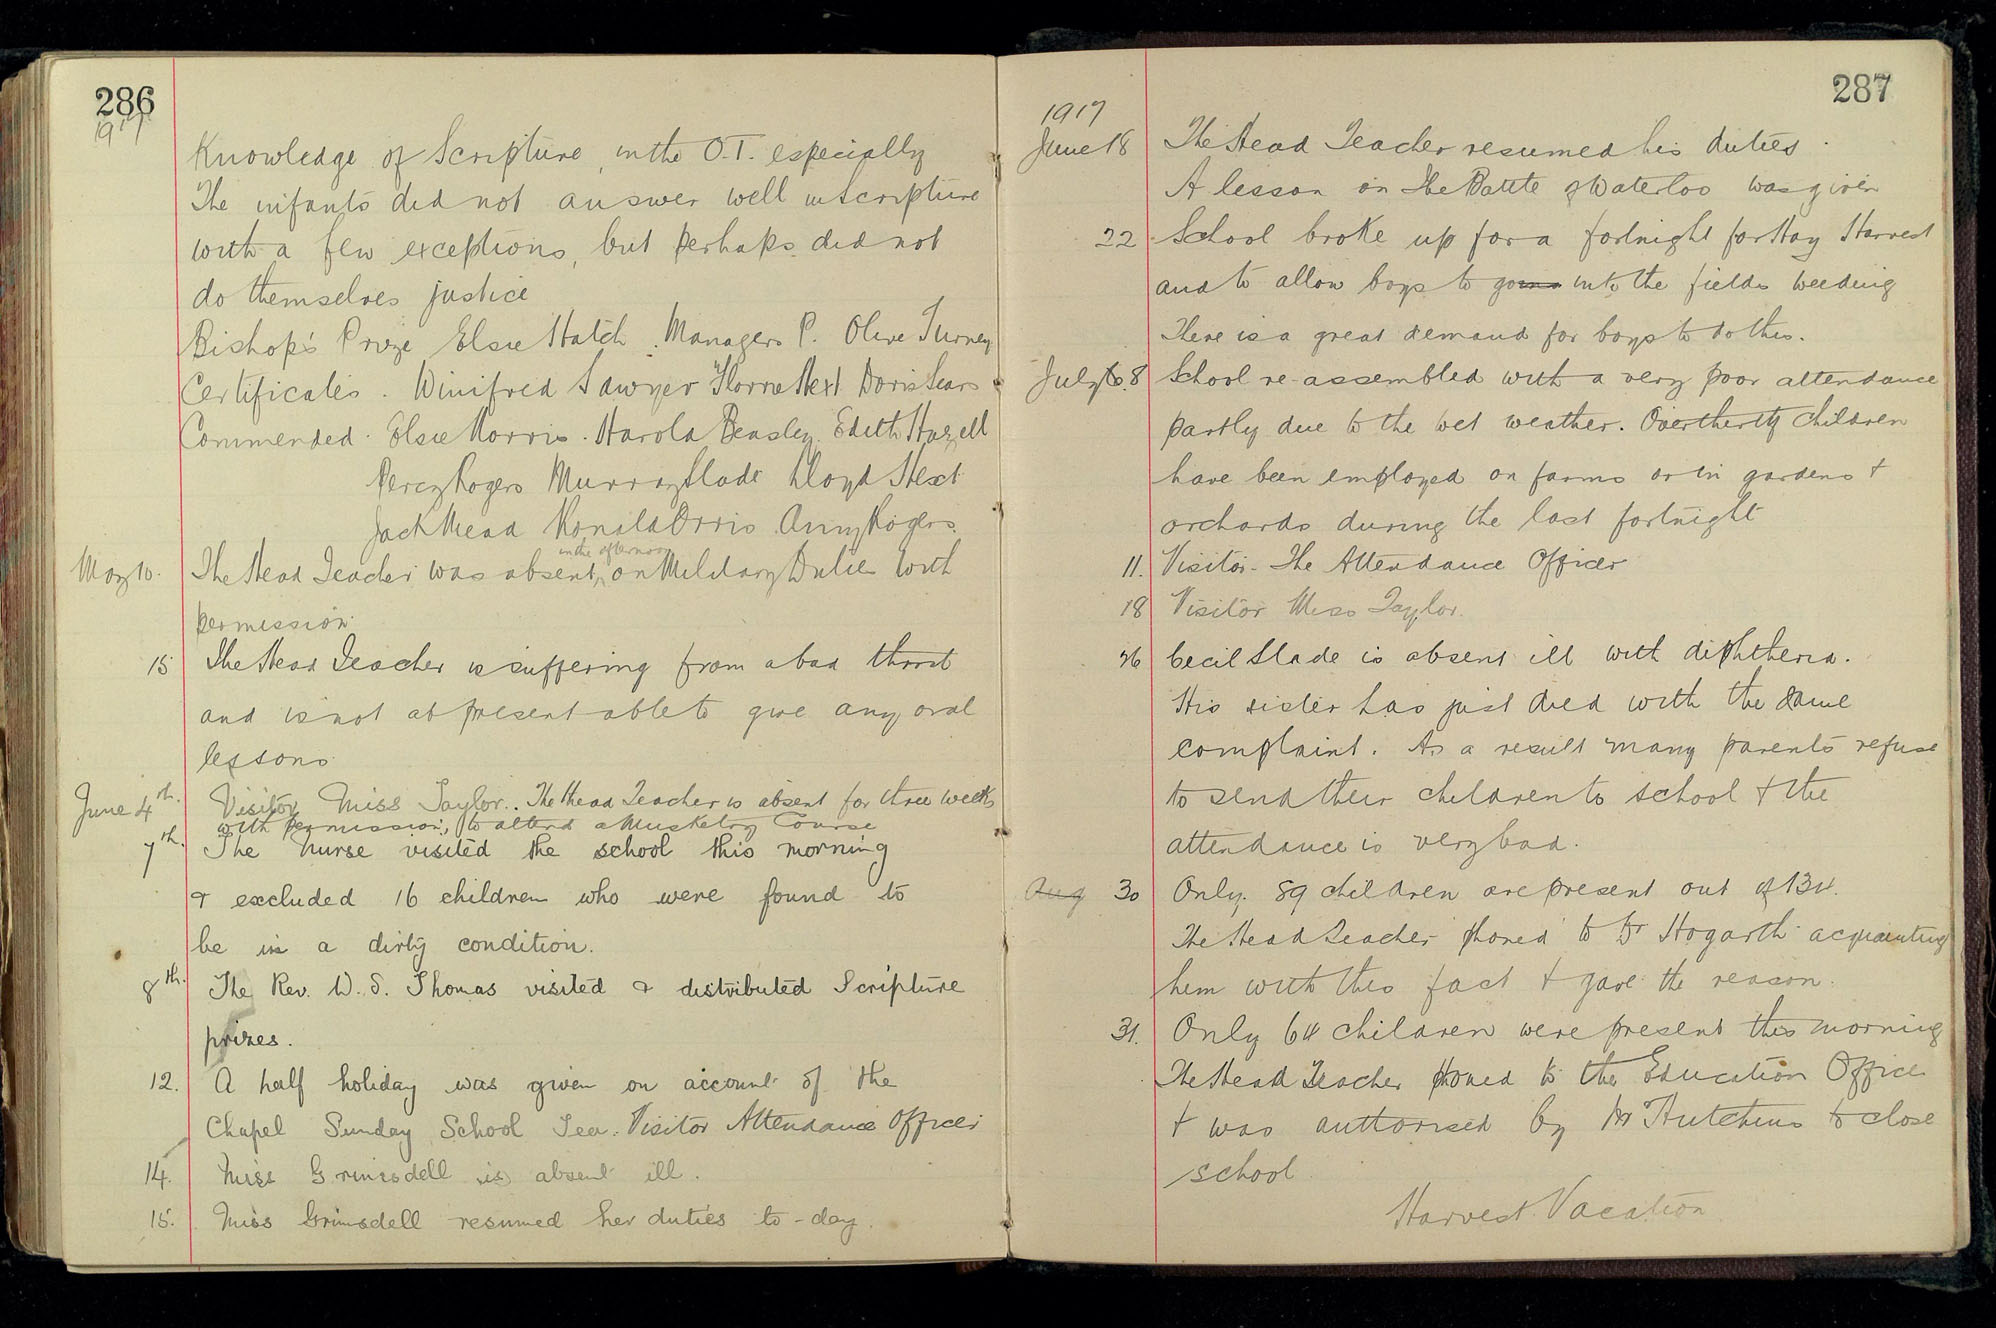 286
1917
Knowledge of Scripture, in the O.T. especially
The infants did not answer well in Scripture
with a few exceptions, but perhaps did not
do themselves justice
Bishop's Prize Elsie Hatch. Managers P. Olive Turney
Certificates. Winifred Sawyer Florrie Hext Doris Sears
Commended. Elsie Norris. Harold Beasley. Edith Hazell
Percy Rogers Murray Slade Lloyd Hext
Jack Mead Ronald Orris Anny Rogers.
in the afternoon
May 10. The Head Teacher was absent, on Military Duties with
permission.
15 The Head Teacher is suffering from a bad throat
and is not at present able to give any oral
lessons
June 4th. Visitor Miss Taylor.. The Head Teacher is absent for three weeks
with permission, to attend a Musketry Course
7th. The Nurse visited the school this morning
& excluded 16 children who were found to
be in a dirty condition.
8th. The Rev. W. S. Thomas visited & distributed Scripture
prizes.
12. A half holiday was given on account of the
Chapel Sunday School Tea. Visitor Attendance Officer
14. Miss Grimsdell is absent ill.
15. Miss Grimsdell resumed her duties to-day.
287
1917
June 18 The Head Teacher resumed his duties.
A lesson on The Battle of Waterloo was given
22 School broke up for a fortnight for Hay Harvest
and to allow boys to go into the fields weeding
There is a great demand for boys to do this.
July 8 School re-assembled with a very poor attendance
partly due to the wet weather. Over thirty children
have been employed on farms or in gardens &
orchards during the last fortnight
11. Visitor- The Attendance Officer
18 Visitor Miss Taylor.
26 Cecil Slade is absent ill with diphtheria.
His sister has just died with the same
complaint. As a result many parents refuse
to send their children to school & the
attendance is very bad.
Aug 30 Only 89 children are present out of 134.
The Head Teacher phoned to Dr Hogarth acquainting
him with this fact & gave the reason.
31. Only 64 children were present this morning
The Head Teacher phoned to the Education Office
& was authorised by Mr Hutchins to close
school
Harvest Vacation